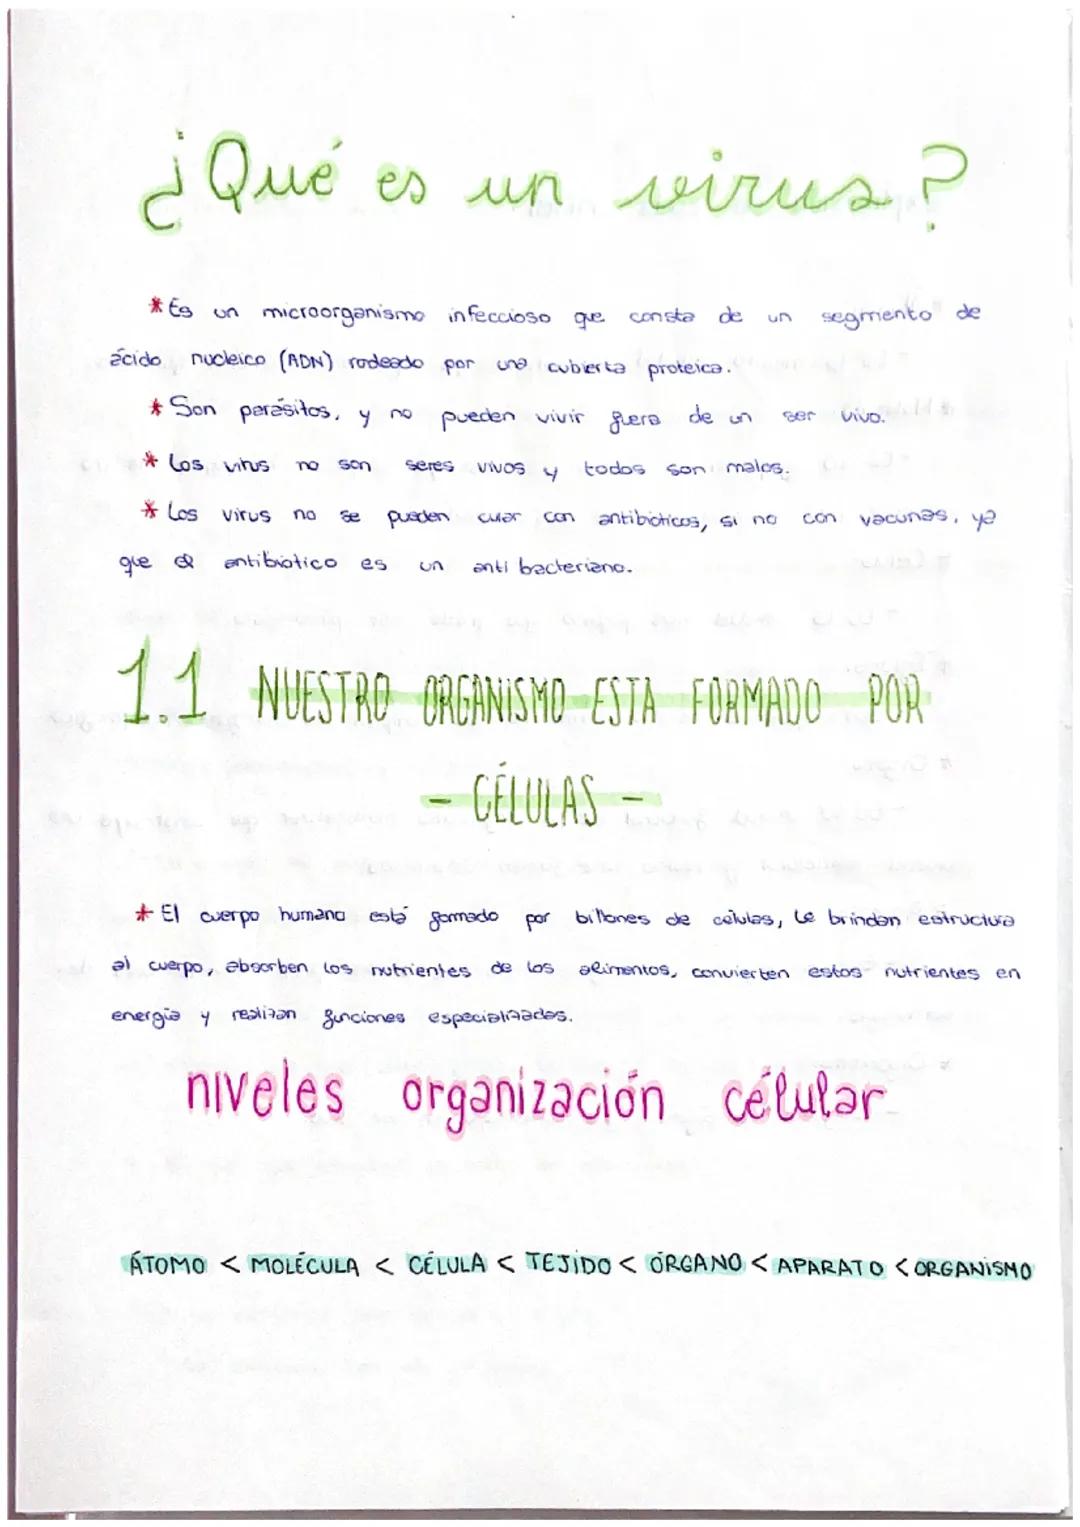 ¿Qué es un virus?
* Es un microorganismo infeccioso que consta de un segmento de
ácido nucleico (ADN) rodeado por una cubierta proteica.
* Son parásitos, y no pueden vivir fuera de un ser vivo.
* Los virus no son seres vivos y todos son malos.
* Los virus no se pueden curar con antibióticos, si no con vacunas, ya
que el antibiótico es un anti bacteriano.
1.1 NUESTRO ORGANISMO ESTA FORMADO POR
- CÉLULAS -
* El cuerpo humano está formado por billones de células, Le brindan estructura
al cuerpo, absorben los nutrientes de los alimentos, convierten estos nutrientes en
energía y realizan funciones especializadas.
niveles organización célular
ÁTOMO < MOLÉCULA < CÉLULA < TEJIDO < ÓRGANO < APARATO < ORGANISMO